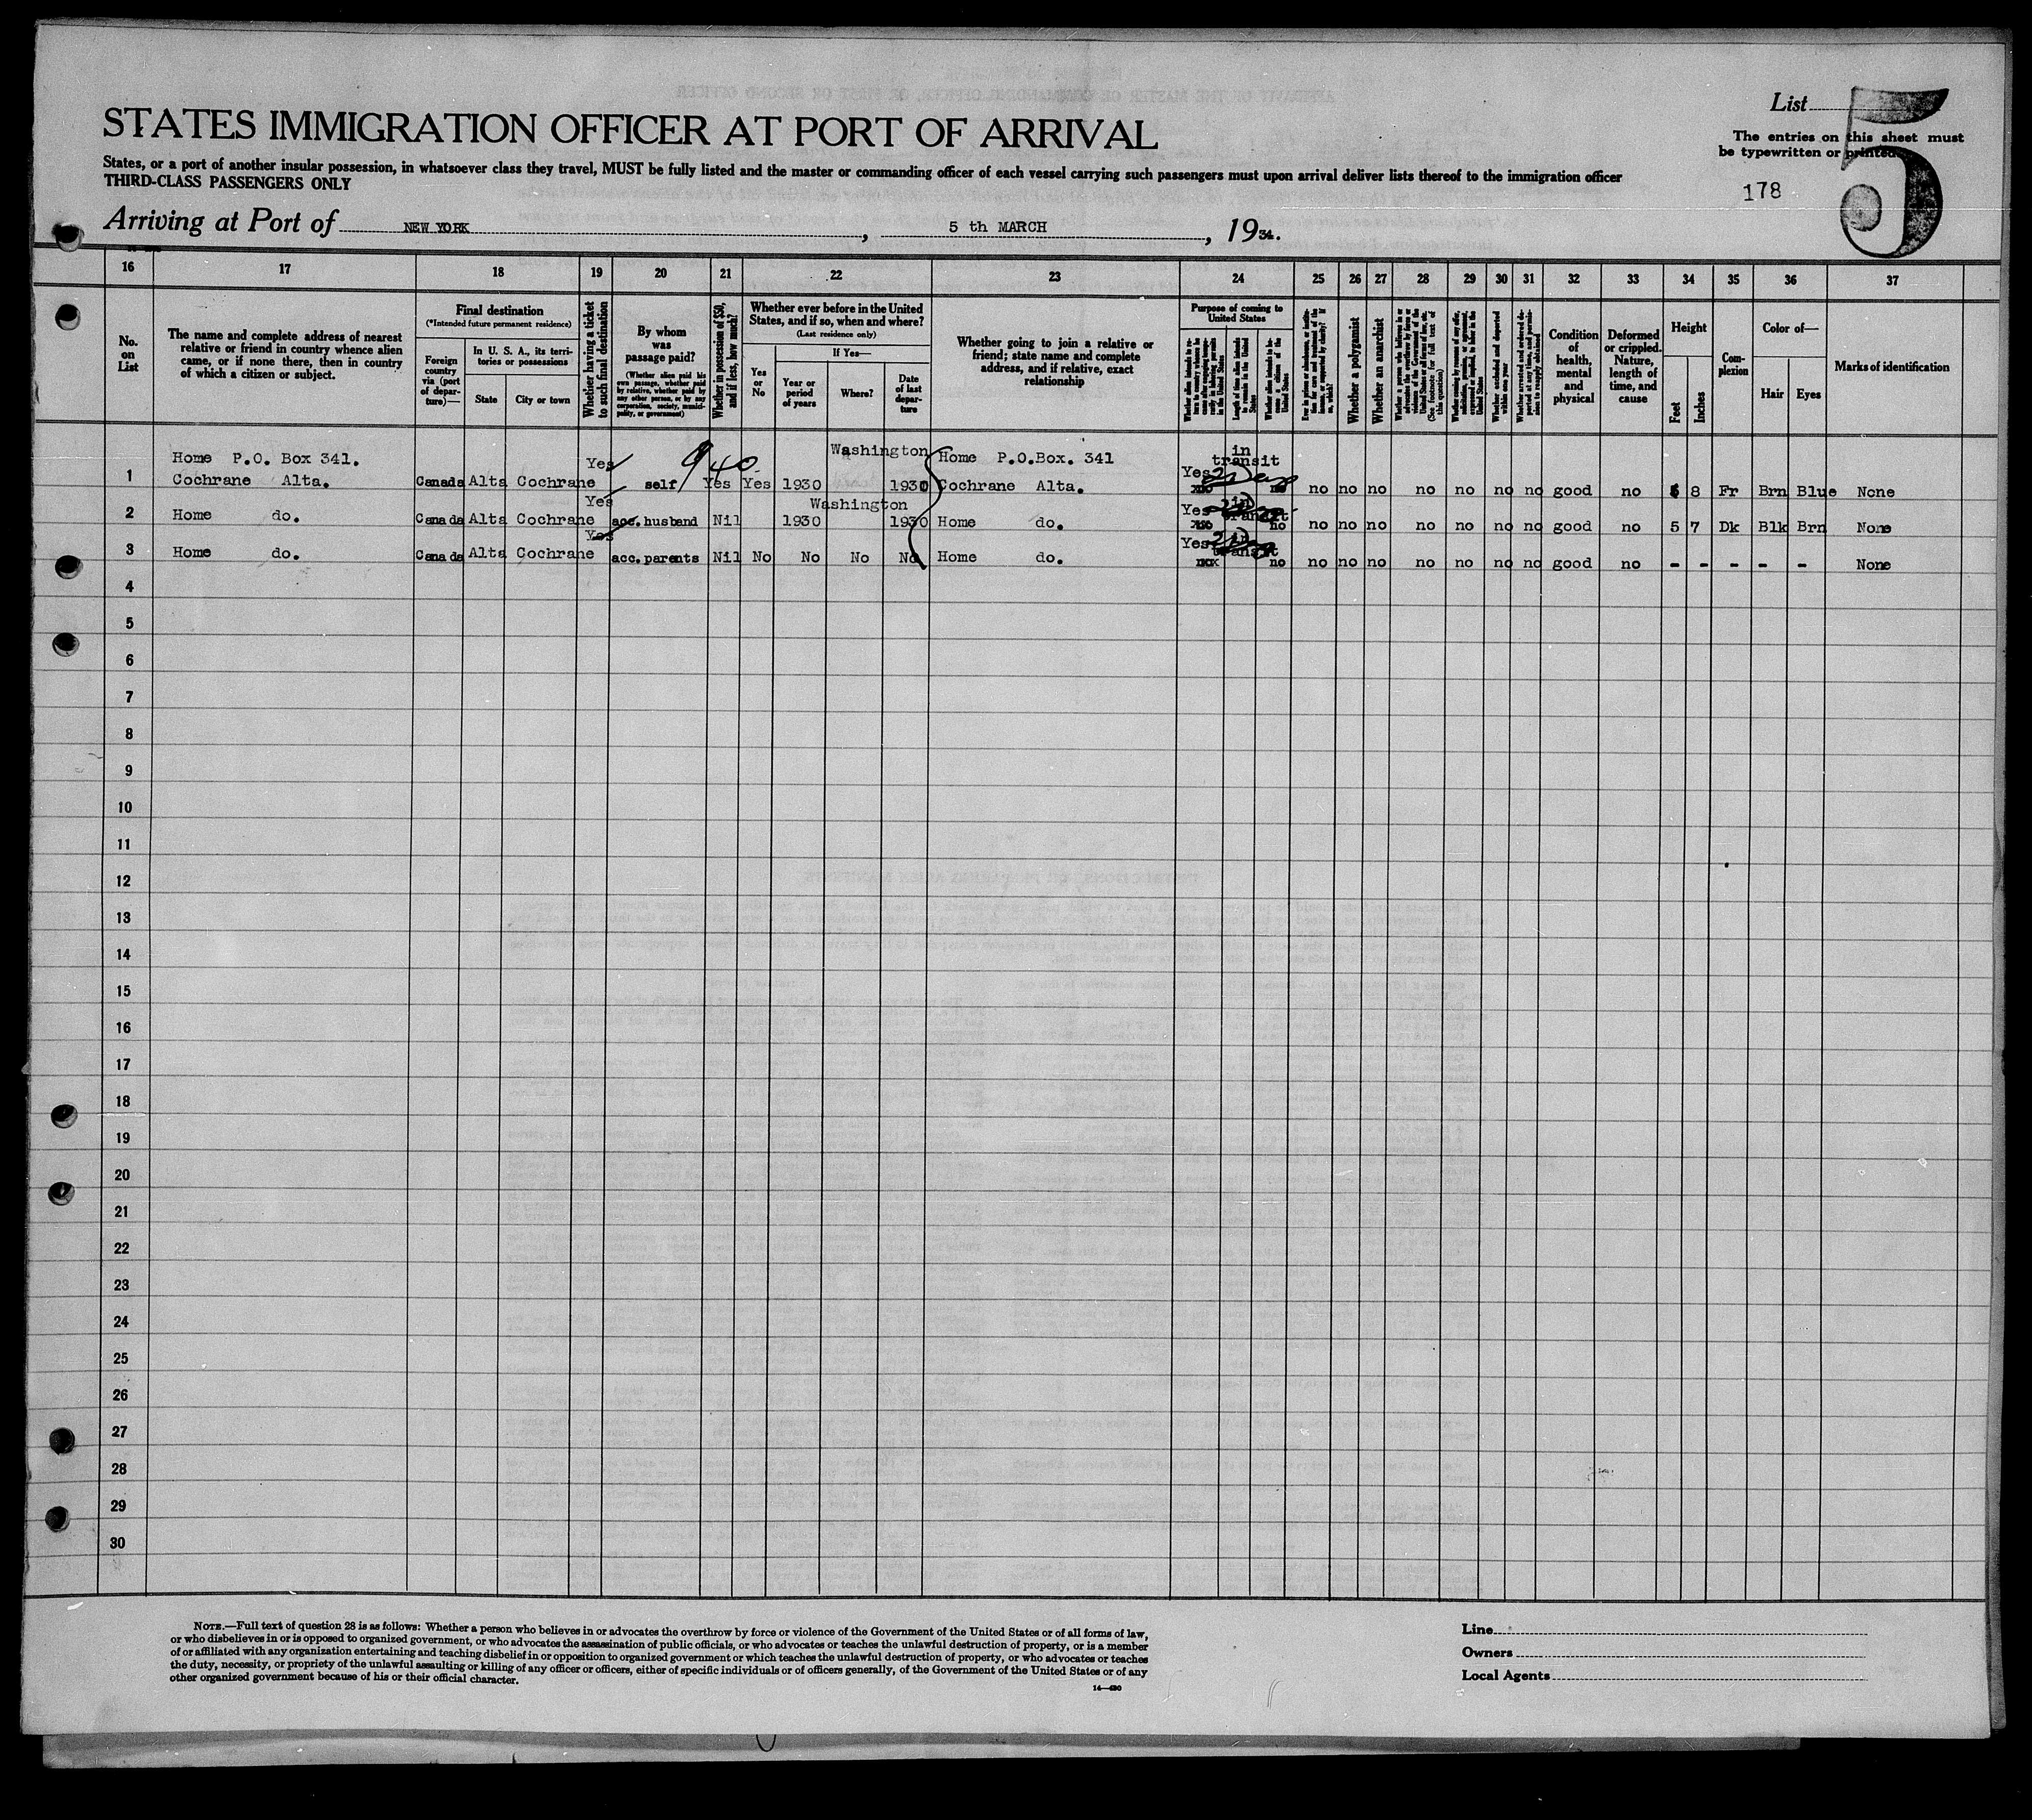 STATES IMMIGRATION OFFICER AT PORT OF ARRIVAL
List
5
The entries on this sheet must
be typewritten or printed
178
States, or a port of another insular possession, in whatsoever class they travel, MUST be fully listed and the master or commanding officer of each vessel carrying such passengers must upon arrival deliver lists thereof to the immigration officer
THIRD-CLASS PASSENGERS ONLY
Arriving at Port of NEW YORK, 5 th MARCH, 1934.
16 17 18 19 20 21 22 23 24 25 26 27 28 29 30 31 32 33 34 35 36 37
No.
on
List
The name and complete address of nearest
relative or friend in country whence alien
came, or if none there, then in country
of which a citizen or subject.
Final destination
(*Intended future permanent residence)
Foreign
country
via (port
of depar-
ture)—
In U. S. A., its terri-
tories or possessions
State
City or town
Whether having a ticket
to such final destination
By whom
was
passage paid?
(Whether alien paid his
own passage, whether paid
by relative, whether paid by
any other person, or by any
corporation, society, munici-
pality, or government)
Whether in possession of $50,
and if less, how much?
Whether ever before in the United
States, and if so, when and where?
(Last residence only)
Yes
or
No
If Yes—
Year or
period
of years
Where?
Date
of last
depar-
ture
Whether going to join a relative or
friend; state name and complete
address, and if relative, exact
relationship
Purpose of coming to
United States
Length of time alien intends
to remain in the United
States
Whether alien intends to be-
come a citizen of the
United States
Whether a polygamist
Whether an anarchist
Whether excluded and deported
within one year
Condition
of
health,
mental
and
physical
Deformed
or crippled.
Nature,
length of
time, and
cause
Height
Feet
Inches
Com-
plexion
Color of—
Hair
Eyes
Marks of identification
Home P.O. Box 341. Yes 940. Washington Home P.O.Box. 341 in transit
1 Cochrane Alta. Canada Alta Cochrane self Yes Yes 1930 1930 Cochrane Alta. Yes 2 Days no no no no no no no no good no 8 Fr Brn Blue None
Yes Washington in transit
2 Home do. Canada Alta Cochrane acc. husband Nil 1930 1930 Home do. Yes no no no no no no no no good no 5 7 Dk Blk Brn None
Yes in transit
3 Home do. Canada Alta Cochrane acc. parents Nil No No No No Home do. Yes no no no no no no no no good no - - - - - None
4
5
6
7
8
9
10
11
12
13
14
15
16
17
18
19
20
21
22
23
24
25
26
27
28
29
30
NOTE.—Full text of question 28 is as follows: Whether a person who believes in or advocates the overthrow by force or violence of the Government of the United States or of all forms of law,
or who disbelieves in or is opposed to organized government, or who advocates the assassination of public officials, or who advocates or teaches the unlawful destruction of property, or is a member
of or affiliated with any organization entertaining and teaching disbelief in or opposition to organized government or which teaches the unlawful destruction of property, or who advocates or teaches
the duty, necessity, or propriety of the unlawful assaulting or killing of any officer or officers, either of specific individuals or of officers generally, of the Government of the United States or of any
other organized government because of his or their official character.
14—430
Line
Owners
Local Agents